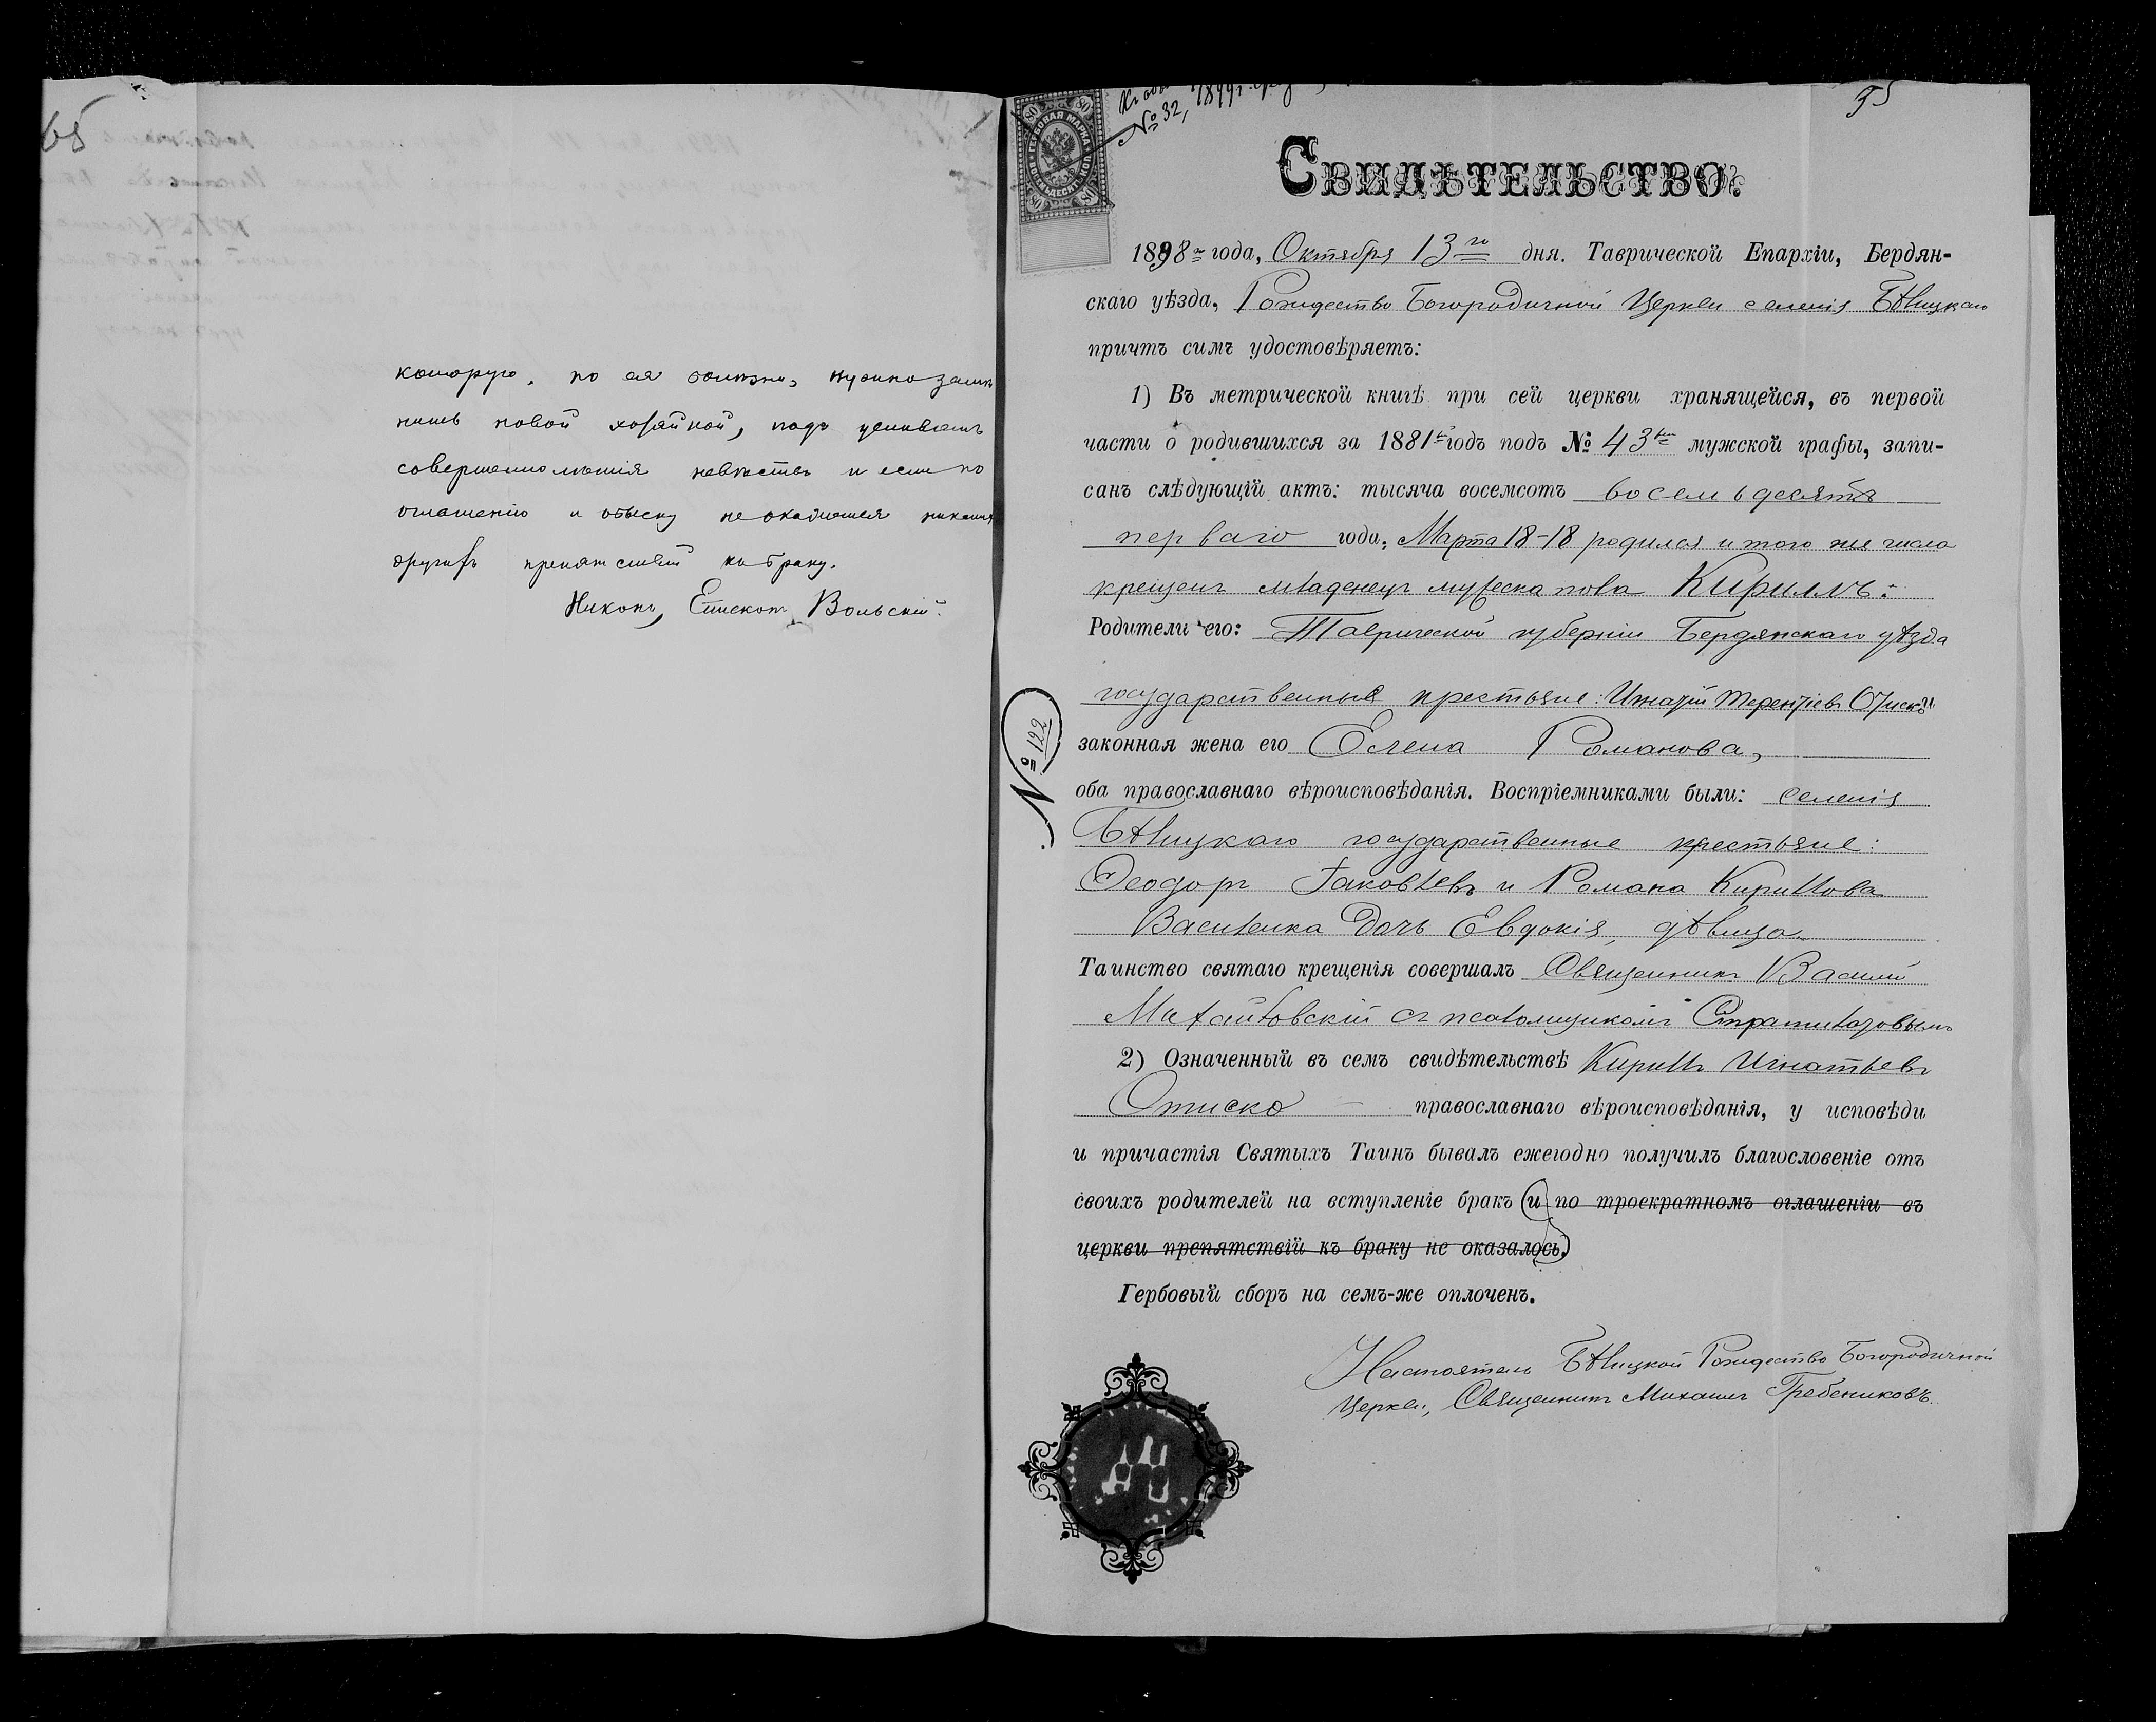 65
которую, по ея болѣзни, нужно замѣ
нить новой хозяйкой, подъ условіемъ
совершеннолѣтія невѣсты и если по
оглашенію и обыску не окажется никакихъ
другихъ препятствій къ браку.
Никонъ, Епископъ Вольскій.
№ 32, 1899 г.
80 80
ГЕРБОВАЯ МАРКА
ВОСЕМЬДЕСЯТЪ КОП.
80 80
55
СВИДѢТЕЛЬСТВО.
1898 года, Октября 13го дня. Таврической Епархіи, Бердян-
скаго уѣзда, Рождество Богородичной Церкви селенія Бѣлицкаго
причтъ симъ удостовѣряетъ:
1) Въ метрической книгѣ при сей церкви хранящейся, въ первой
части о родившихся за 1881й годъ подъ № 43мъ мужской графы, запи-
санъ слѣдующій актъ: тысяча восемсотъ восемьдесятъ
перваго года, Марта 18-18 родился и того же числа
крещенъ младенецъ мужеска пола Кириллъ.
Родители его: Таврической губерніи Бердянскаго уѣзда
государственные крестьяне: Игнатій Терентіевъ
законная жена его Елена Романова,
№ 122
оба православнаго вѣроисповѣданія. Воспріемниками были: селенія
Бѣлицкаго государственные крестьяне:
Ѳеодоръ Іаковлевъ и Романа Кириллова
Василенка дочь Евдокія, дѣвица
Таинство святаго крещенія совершалъ Священникъ Василій
Михайловскій съ псаломщикомъ Стратилатовымъ
2) Означенный въ семъ свидѣтельствѣ Кириллъ Игнатьевъ
Отиско православнаго вѣроисповѣданія, у исповѣди
и причастія Святыхъ Таинъ бывалъ ежегодно получилъ благословеніе отъ
своихъ родителей на вступленіе бракъ (и по троекратномъ оглашеніи въ
церкви препятствій къ браку не оказалось.)
Гербовый сборъ на семъ-же оплоченъ.
Настоятель Бѣлицкой Рождество Богородичной
Церкви, Священникъ Михаилъ Гребениковъ.